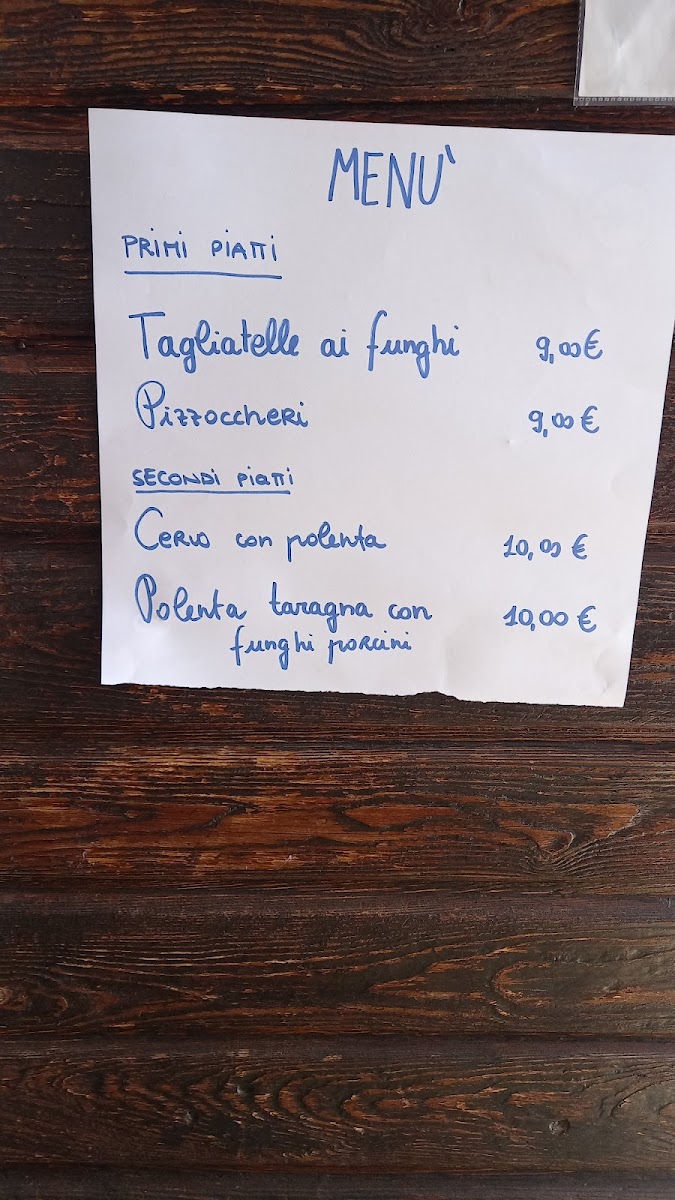 MENU'
PRIMI PIATTI
Tagliatelle ai funghi 9,00 €
Pizzoccheri 9,00 €
SECONDI PIATTI
Cervo con polenta 10,00 €
Polenta taragna con 10,00 €
funghi porcini